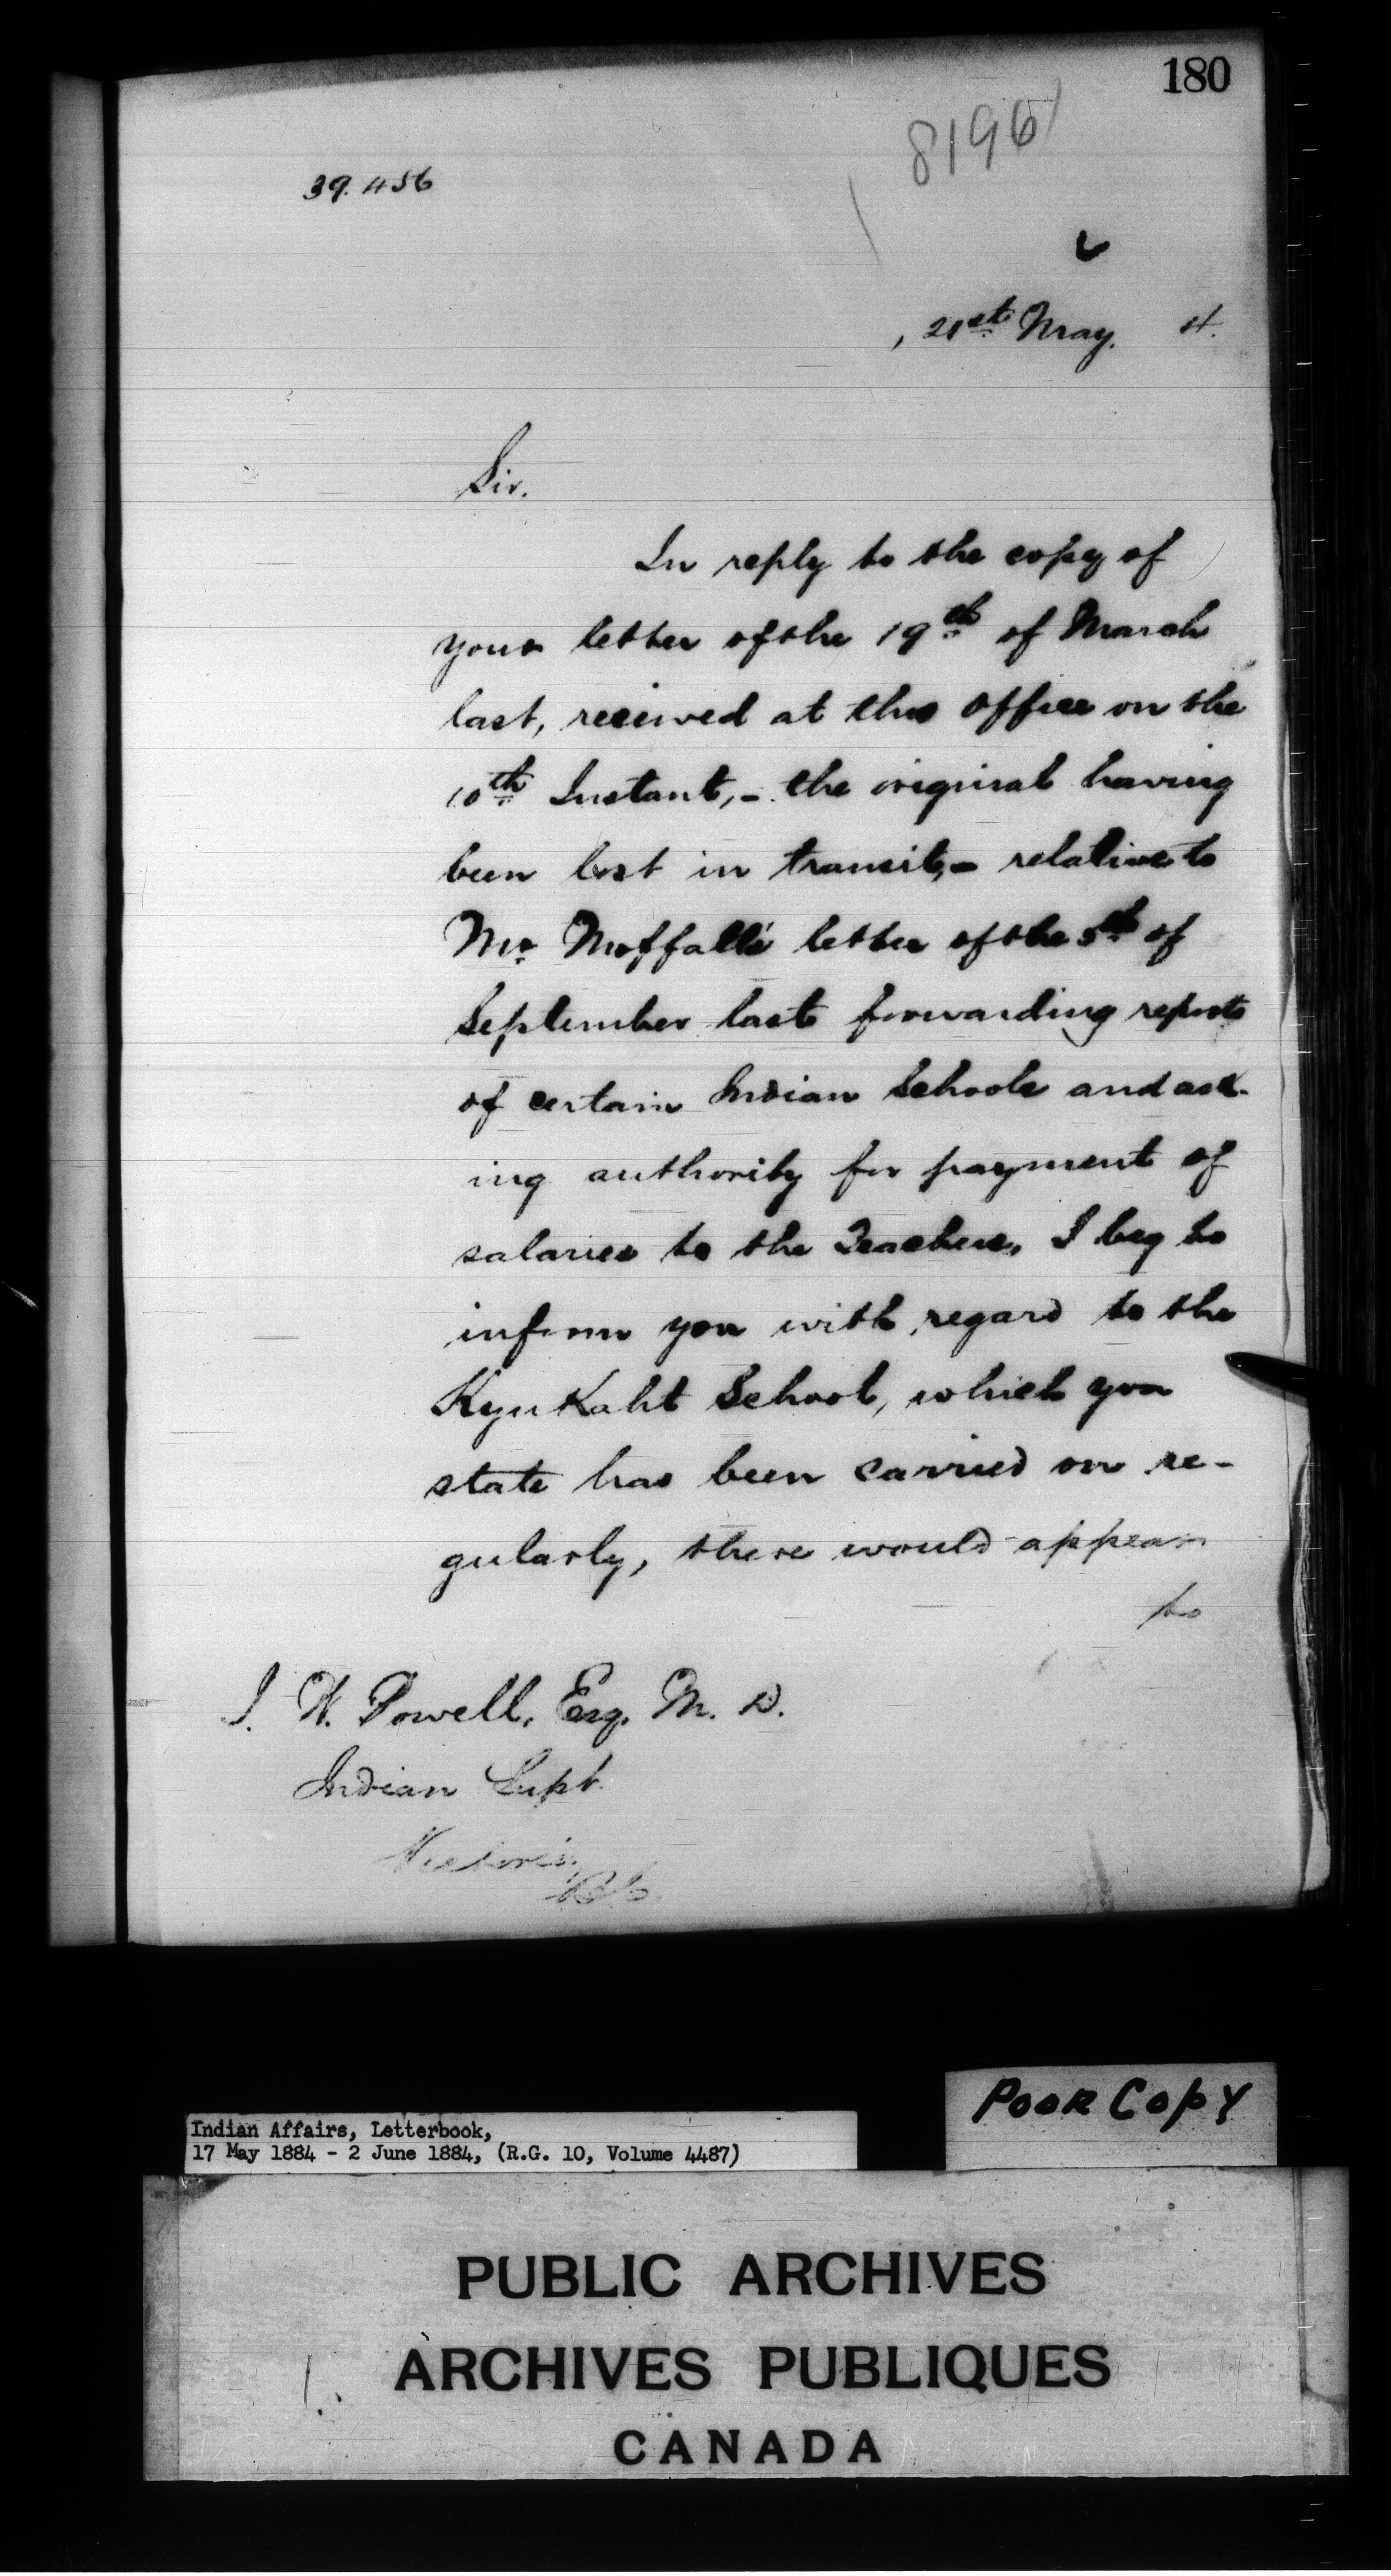 180
8196
39.456
, 21st May. 4.
Sir.
In reply to the copy of
your letter of the 19th of March
last, received at this Office on the
10th Instant, - the original having
been lost in transit, - relative to
Mr. Moffatt's letter of the 5th of
September last forwarding reports
of certain Indian Schools and ask-
ing authority for payment of
salaries to the Teachers, I beg to
inform you with regard to the
KyuKaht School, which you
state has been carried on re-
gularly, there would appear
to
I. W. Powell, Esq. M. D.
Indian Supt.
Victoria,
B.C.
POOR COPY
Indian Affairs, Letterbook,
17 May 1884 - 2 June 1884, (R.G. 10, Volume 4487)
PUBLIC ARCHIVES
ARCHIVES PUBLIQUES
CANADA